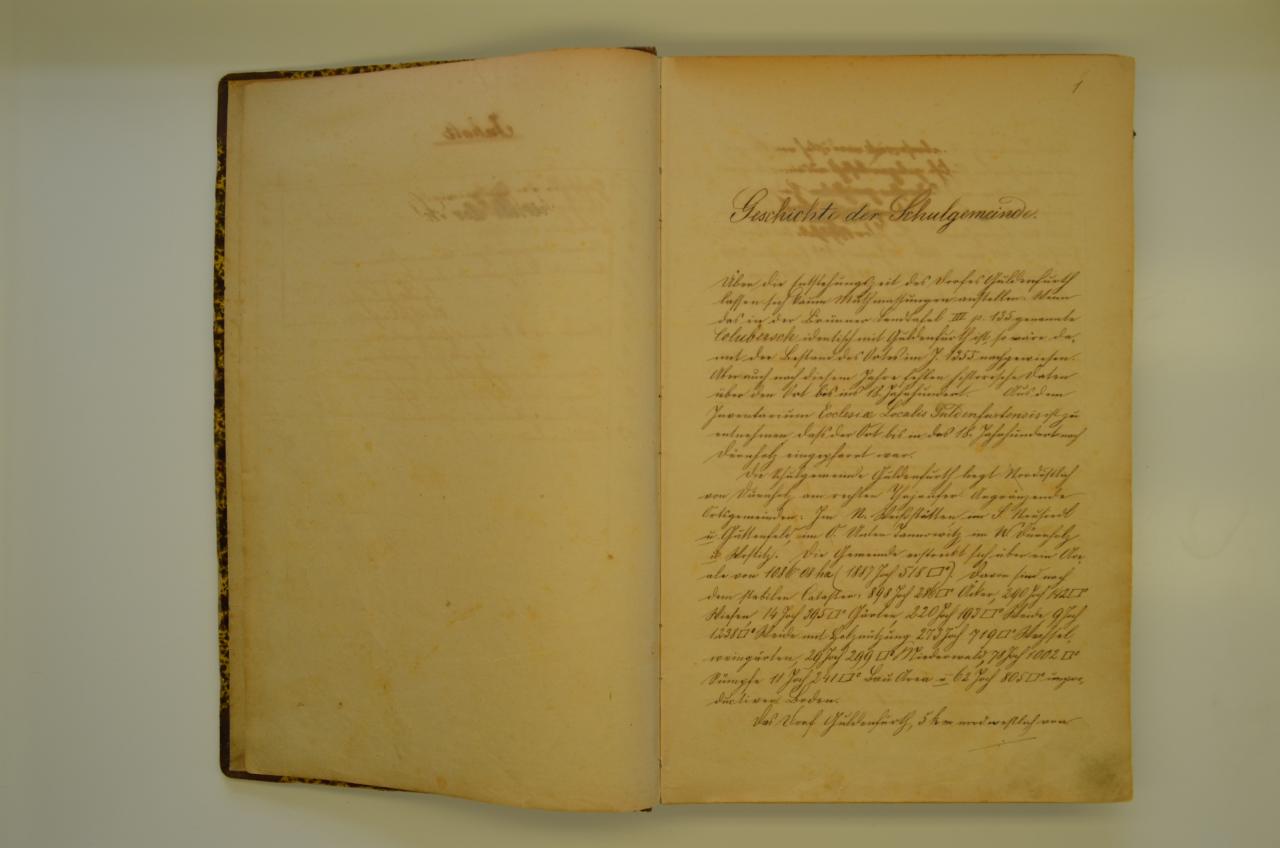 Inhalt
1
Geschichte der Schulgemeinde.
Über die Entstehungszeit des Dorfes Guldenfurth
lassen sich kaum Muthmassungen anstellen. Wenn
das in der Brünner Landtafel III p. 135 genannte
Colubersch identisch mit Guldenfurth ist, so wäre da-
mit der Bestand des Ortes im J. 1355 nachgewiesen.
Aber auch nach diesem Jahre fehlen historische Daten
über den Ort bis ins 18. Jahrhundert. Aus dem
Inventarium Ecclesiæ Localis Guldenfurtensis ist zu
entnehmen daß der Ort bis in das 18. Jahrhundert nach
Dürnholz eingepfarrt war.
Die Schulgemeinde Guldenfurth liegt Nordöstlich
von Dürnholz am rechten Thayaufer. Angränzende
Ortsgemeinden: Im N. Weißstätten im S. Neusiedl
u. Guttenfeld, im O. Unter Tannowitz im W. Dürnholz
u.. Die Gemeinde erstreckt sich über ein Are-
ale von 1086·08 ha (1887 Joch 518□°). Davon sind nach
dem stabilen Cataster: 898 Joch 286□° Äcker, 290 Joch 142□°
Wiesen 14 Joch 395□° Gärten, 220 Joch 193□° Weide, 9 Joch
1238□° Weide mit Holznutzung 273 Joch 719□° Wechsel,
weingärten, 29 Joch 299□° Niederwald, 78 Joch 1002□°
Sümpfe 11 Joch 241□° Bau Area u. 62 Joch 805□° impro-
ductiver Boden.
Das Dorf Guldenfurth, 5 km nordwestlich von